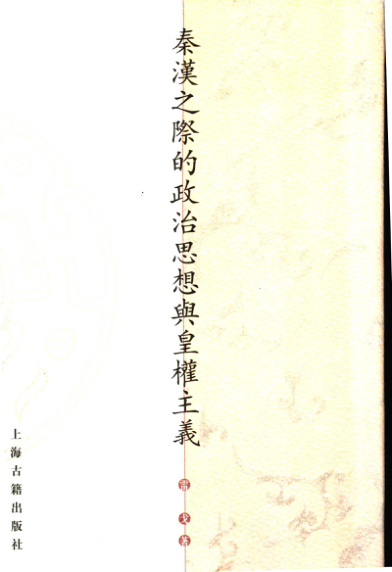 秦漢之際的政治思想與皇權主義
雷戈著
上海古籍出版社